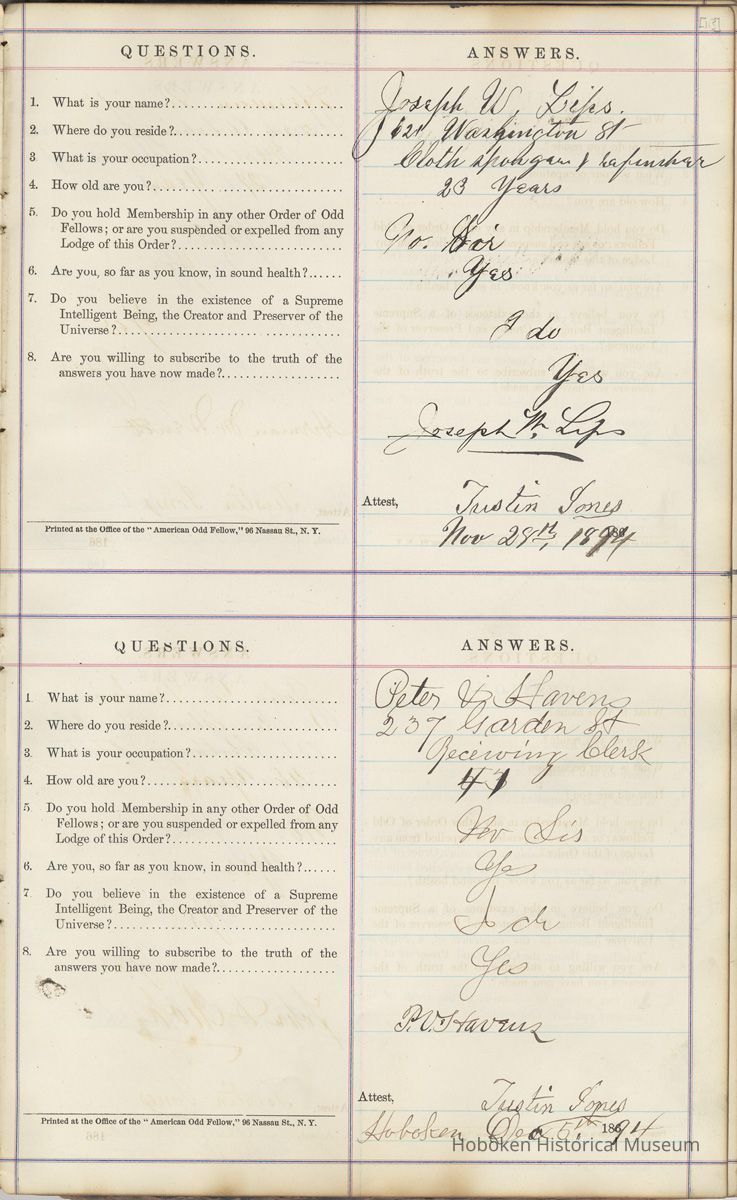 QUESTIONS. ANSWERS.
1. What is your name? Joseph W. Lips.
2. Where do you reside? 621 Washington St
3 What is your occupation? Cloth sponger &
4. How old are you? 23 Years
5. Do you hold Membership in any other Order of Odd
Fellows; or are you suspended or expelled from any
Lodge of this Order? No. Sir
6. Are you, so far as you know, in sound health? Yes
7. Do you believe in the existence of a Supreme
Intelligent Being, the Creator and Preserver of the
Universe? I do
8. Are you willing to subscribe to the truth of the
answers you have now made? Yes
Joseph W. Lips
Attest, Justin Jones
Printed at the Office of the "American Odd Fellow," 96 Nassau St., N. Y.
Nov 28th, 1894
QUESTIONS. ANSWERS.
1 What is your name? Peter V Havens
2. Where do you reside? 237 Garden St
3 What is your occupation? Receiving Clerk
4. How old are you?
5 Do you hold Membership in any other Order of Odd
Fellows; or are you suspended or expelled from any
Lodge of this Order? No Sir
6. Are you, so far as you know, in sound health? Yes
7 Do you believe in the existence of a Supreme
Intelligent Being, the Creator and Preserver of the
Universe? I do
8. Are you willing to subscribe to the truth of the
answers you have now made? Yes
P. V. Havens
Attest, Justin Jones
Printed at the Office of the "American Odd Fellow," 96 Nassau St., N. Y.
Hoboken Dec 5th 1894
Hoboken Historical Museum